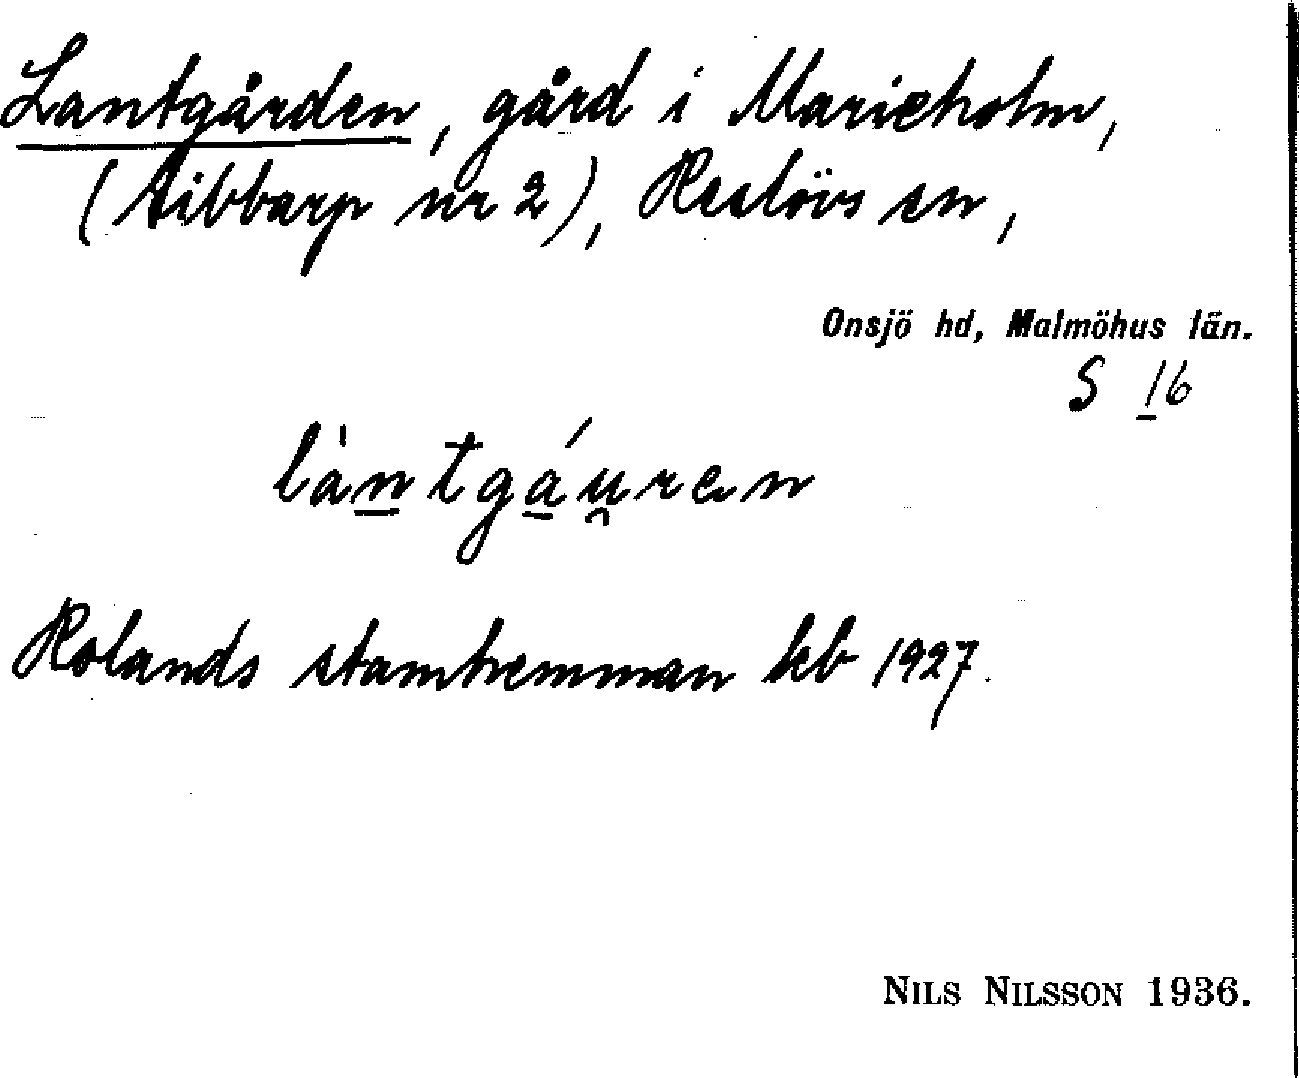 Lantgården, gård i Marieholm,
(Sibbarp nr 2), Reslövs sn,
Onsjö hd, Malmöhus län.
S 16
làntgáu̯ren
Rolands stamhemman kb 1927.
NILS NILSSON 1936.